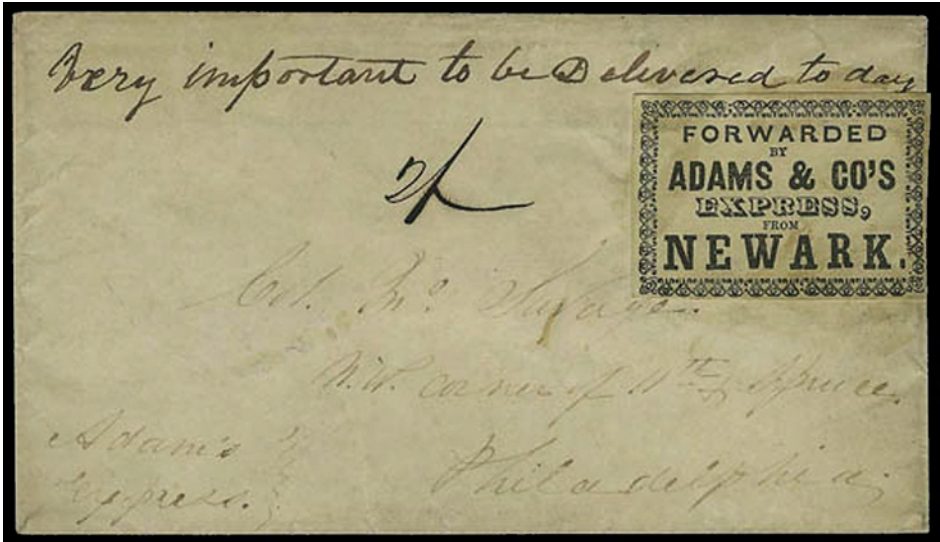 Very important to be Delivered to day
2/
FORWARDED
BY
ADAMS & CO'S
EXPRESS,
FROM
NEWARK.
Col. Jno. Savage.
N.W. corner of 11th & Spruce.
Philadelphia.
Adam's
Express.